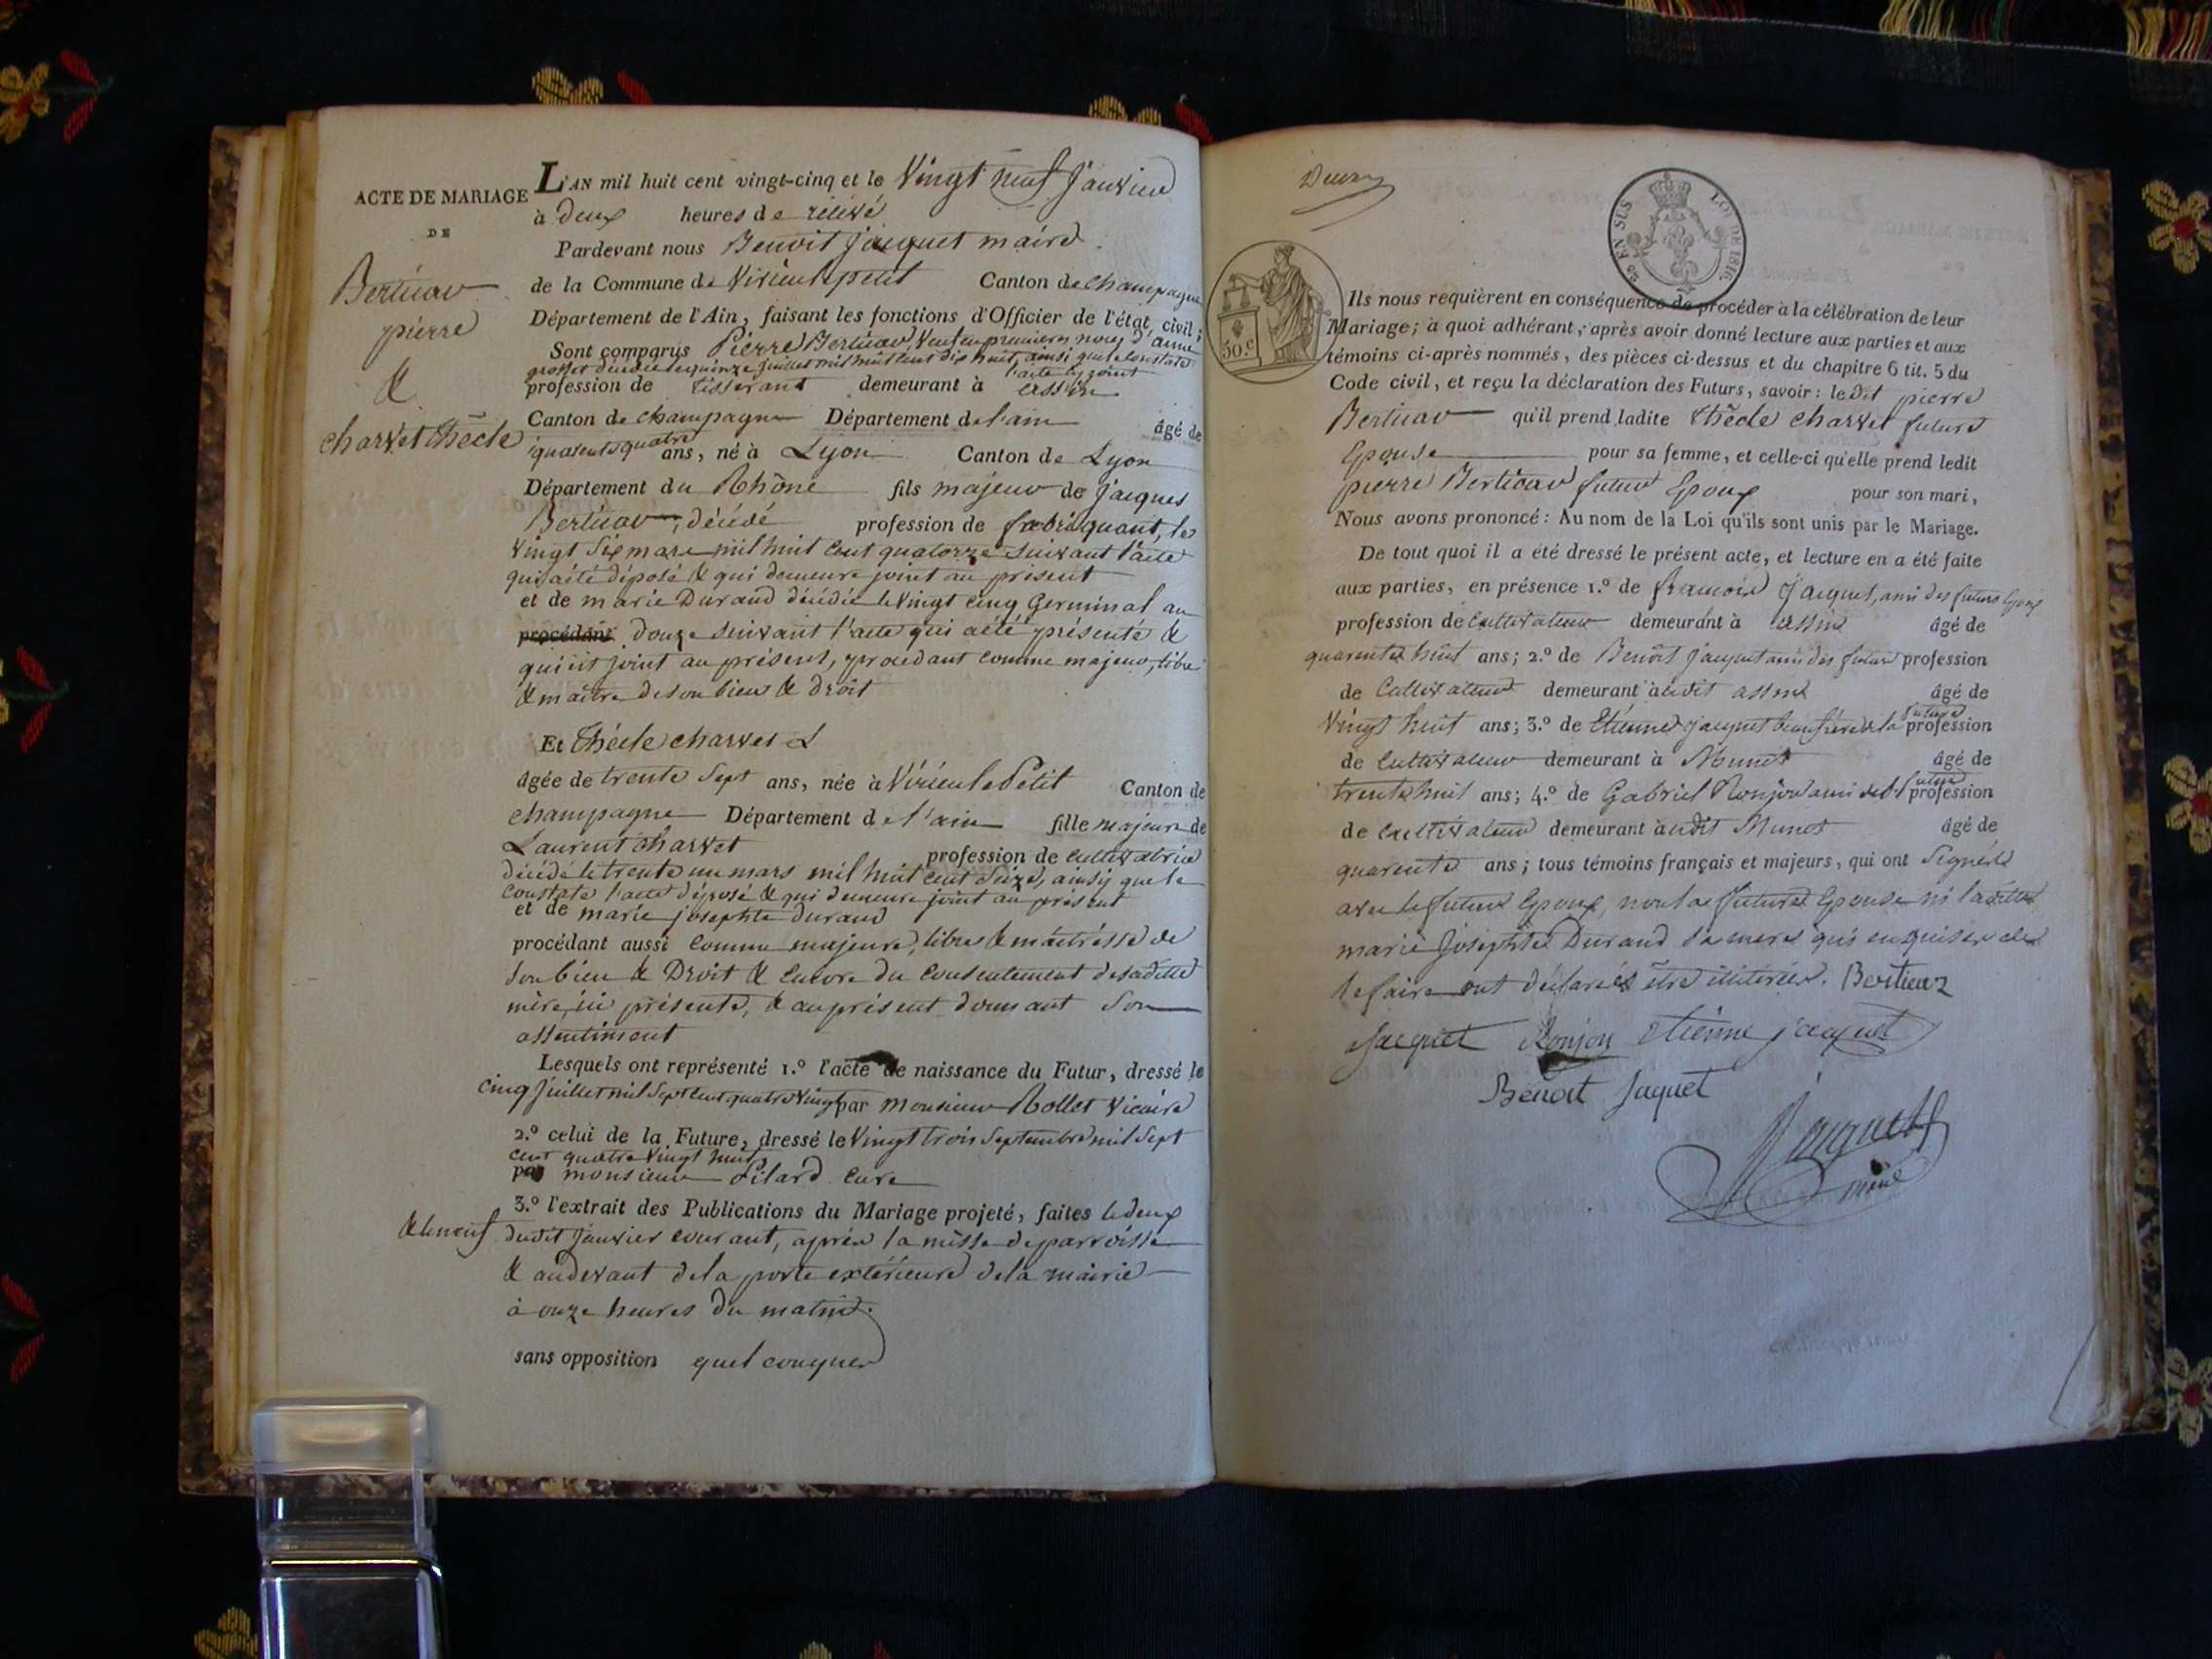 ACTE DE MARIAGE
DE
Bertiear
pierre
&
charvet thècle
L'AN mil huit cent vingt-cinq et le Vingt neuf janvier
à deux heures de relevé
Pardevant nous Benoit jacquet maire
de la Commune de Virieu le petit Canton de champagne
Département de l'Ain, faisant les fonctions d'Officier de l'état civil;
Sont comparus Pierre Bertiear, Veuf en premieres noces d'anne
décédée le quinze juillet mil huit cent dix huit, ainsi que le constate
l'acte cy joint
profession de tisserant demeurant à assin
Canton de champagne Département de l'ain âgé de
quarente quatre ans, né à Lyon Canton de Lyon
Département du Rhône fils majeur de jacques
Bertiear, décédé profession de fabriquant, le
Vingt six mars mil huit cent quatorze suivant l'acte
qui a été déposé & qui demeure joint au présent
et de marie Durand décédée le Vingt cinq Germinal an
procédant douze suivant l'acte qui a été présenté &
qui est joint au présent, procedant comme majeur, libre
& maitre de son bien & droit
Et thécle charvet
âgée de trente Sept ans, née à Virieu le Petit Canton de
champagne Département de l'ain fille majeure de
Laurent charvet profession de cultivatrice
décédé le trente un mars mil huit cent Seize, ainsy que le
constate l'acte déposé & qui demeure joint au présent
et de marie josephte durand
procédant aussi comme majeure, libre & maitresse de
son bien & Droit & encore du consentement de sa ditte
mère, ici présente, & au présent donnant Son
assentiment
Lesquels ont représenté 1.º l'acte de naissance du Futur, dressé le
cinq juillet mil sept cent quatre vingt par monsieur Rollet Vicaire
2.º celui de la Future, dressé le Vingt trois septembre mil sept
cent quatre vingt huit
par monsieur Pilard Cure
3.º l'extrait des Publications du Mariage projeté, faites le deux
& le neuf dudit janvier courant, après la messe de parroisse
& au devant de la porte extérieure de la mairie
à onze heures du matin.
sans opposition quelconques
Deux
EN SUS LOI DE 1816.
50.c
Ils nous requièrent en conséquence de procéder à la célébration de leur
Mariage; à quoi adhérant, après avoir donné lecture aux parties et aux
témoins ci-après nommés, des pièces ci-dessus et du chapitre 6 tit. 5 du
Code civil, et reçu la déclaration des Futurs, savoir: ledit pierre
Bertiear qu'il prend ladite thècle charvet future
Epouse pour sa femme, et celle-ci qu'elle prend ledit
pierre Bertiear futur Epoux pour son mari,
Nous avons prononcé: Au nom de la Loi qu'ils sont unis par le Mariage.
De tout quoi il a été dressé le présent acte, et lecture en a été faite
aux parties, en présence 1.º de françois jacquet, ami des futurs Epoux
profession de cultivateur demeurant à assin âgé de
quarente huit ans; 2.º de Benoit jacquet ami des futurs profession
de Cultivateur demeurant audit assin âgé de
Vingt huit ans; 3.º de Etienne jacquet beaufrère de la future profession
de cultivateur demeurant à Munet âgé de
trente huit ans; 4.º de Gabriel Ronjon ami de la future profession
de cultivateur demeurant audit Munet âgé de
quarente ans; tous témoins français et majeurs, qui ont Signés
avec le futur Epoux, non la future Epouse ni laditte
marie josephte Durand sa mere qui enquises de
le faire ont déclarés être illiterées. Bertieer
jacquet Ronjon etienne jacquet
Benoit Jaquet
Jacquet
maire